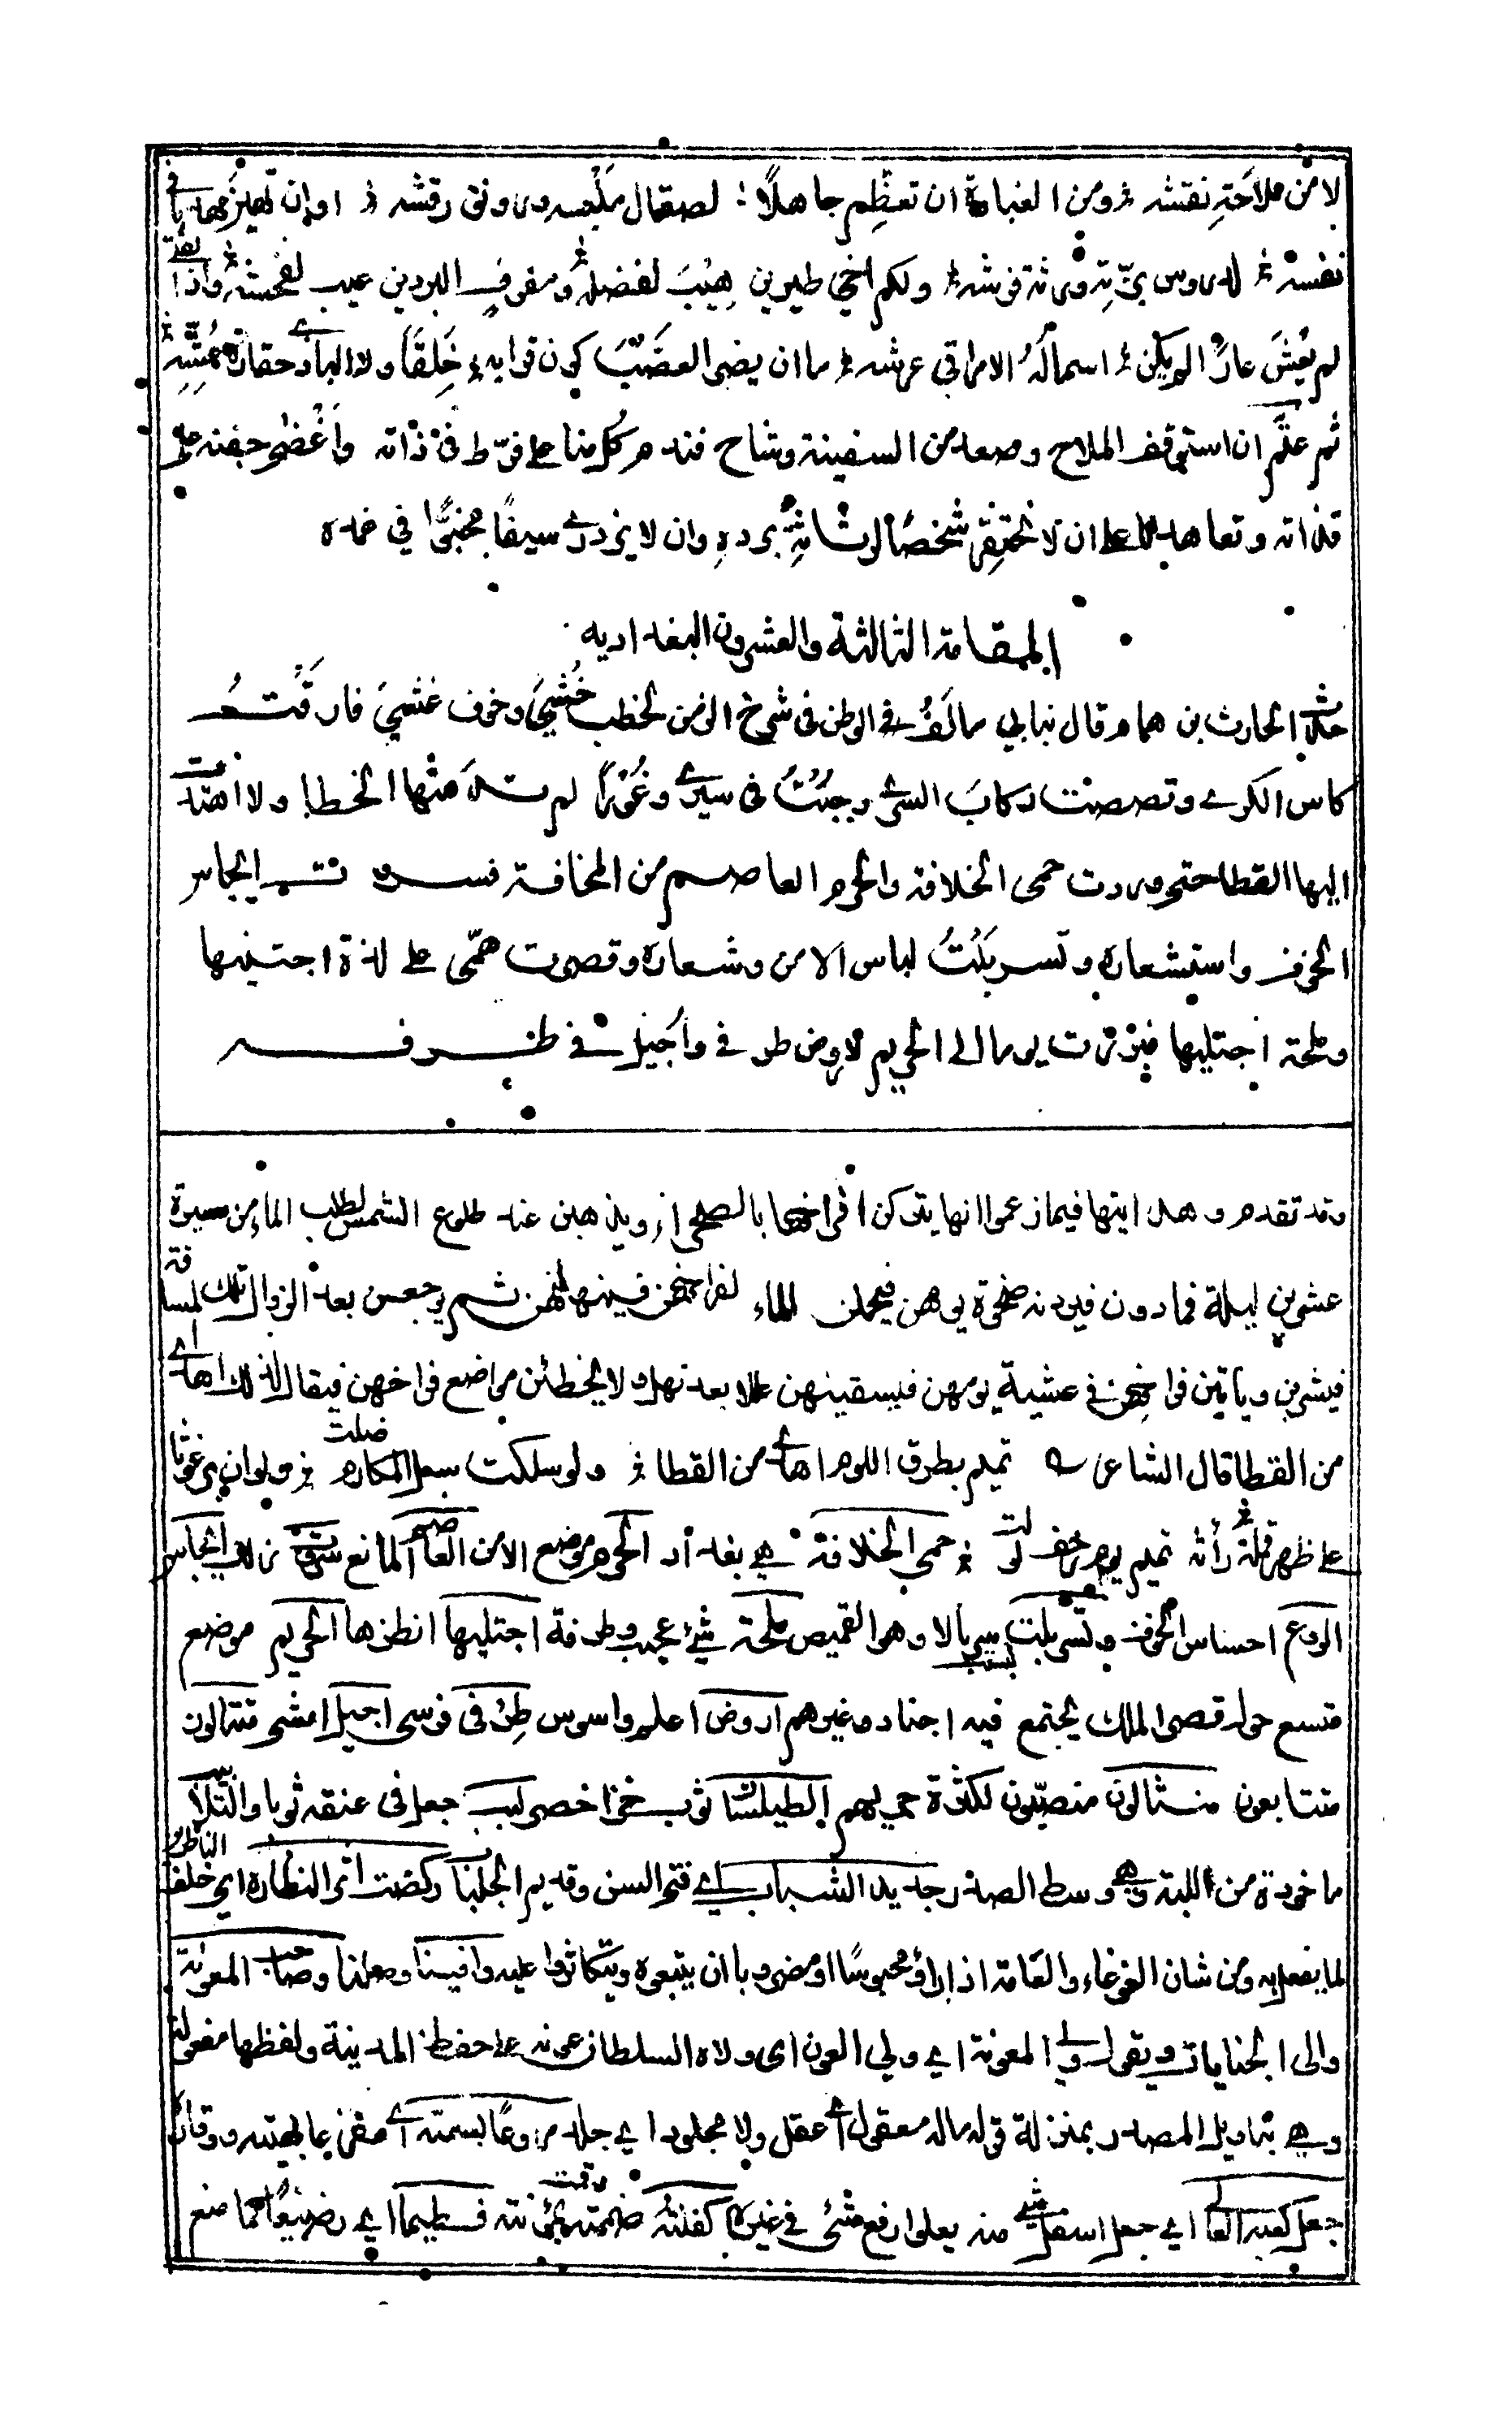 لا من ملاحَةِ نقشه ومن الغباوة ان تعظِّم جاهلًا لصقال مَلْبسه ورونق رقشه او ان تهين مهذبا في
نفسه لدروس بِزَّتِه ورثة فرشه ولكم اخي طمرين هِيْبَ لفضله ومفوف البردين عيب لفحشه واذا الفتى
لم يَغْشَ عارًا لم يكن اسمالُهُ الا مراقي عرشه ما ان يضر العضْبَ كون قرابه خَلِقًا ولا البازي حقارة عُشِّهِ
ثم علّم ان استوقف الملاح وصعد من السفينة وساح فندم كل منا على ما فرّط في ذاته واغْضى جفنه على
قذاته وتعاهدنا على ان لا نحتقر شخصًا لرثاثة برده وان لا نزدري سيفًا مخبّئًا في غمده
المقامة الثالثة والعشرون البغدادية
حكى الحارث بن همام قال نبا بي مالَفُ الوطن في شرخ الزمن لخطب خُشِيَ وخوف غشِيَ فارقتُ
كاس الكرى ونصصت ركاب السرى وجُبْتُ في سيري وعُوْرًا لم تدمثها الخطا ولا اهتدت
اليها القطا حتى وردت حمى الخلافة والحرم العاصم من المخافة فسروت ايجاس
الخوف واستشعاره وتسربَلْتُ لباس الامن وشعاره وقصرت همّي على لذة اجتنيها
وملحة اجتليها فبرزت يوما الى الحريم لاروض طرفي واُجيل في طرفه
وقد تقدم وهدايتها فيما زعموا انها يتركن افراخها بالصحراء ويذهبن عند طلوع الشمس لطلب الماء من مسيرة
عشرين ليلة فما دون فيردنه ضحوة يومهن فيحملن الماء لفراخهن فينهلنهن ثم يرجعن بعد الزوال تلك المسافة
فيشربن وياتين فراخهن في عشية يومهن فيسقينهن عللا بعد نهل ولا يخطئن مواضع فراخهن فيقال لذلك اهدى
من القطا قال الشاعر تميم بطرق اللوم اهدى من القطا ولو سلكت سبل المكارم ضلت ولو ان برغوثا
على ظهر قملة رأته تميم يوم زحف لولت حمى الخلافة هي بغداد الحرم موضع الامن العاصم المانع سروت نزلت ايجاس
الروع احساس الخوف وتسربلت لبست سربالا وهو القميص ملحة شيء عجيب وطرفة اجتليها انظرها الحريم موضع
متسع حول قصر الملك يجتمع فيه اجناده وغيرهم اروض اعلم واسوس طِرْفي فرسي اجيل امشي متتالون
متتابعون منثالون منصبّون لكثرة جريهم الطيلسان ثوب خز اخضر لبب جعل في عنقه ثوبا والتلبيب
ماخوذة من اللبة وهي وسط الصدر جديد الشباب اي فتي السن وقديم الجلباب ركضت اثر النظارة اي خلف الناظرين
لما يفعل به ومن شان الغوغاء والعامة اذا راؤ محبوسًا او مضروبا ان يتبعوه ويتكاثروا عليه وافينا وصلنا وصاحب المعونة
والى الجنايات ويقول ولي المعونة اي ولي العون اى ولاه السلطان عونه على حفظ المدينة ولفظها مفعولة
وهي بتاويل المصدر بمنزلة قوله ماله معقول اي عقل ولا مجلود اي جلد مروعًا بسمته اي مفزعا بهيئته ووقاره
جعل كعبه العالي اي جعل اسفل شيء منه يعلو ارفع شئ في غيره كفلته ضممته وقمت بمؤنته فطيما اي رضيعًا كما منع